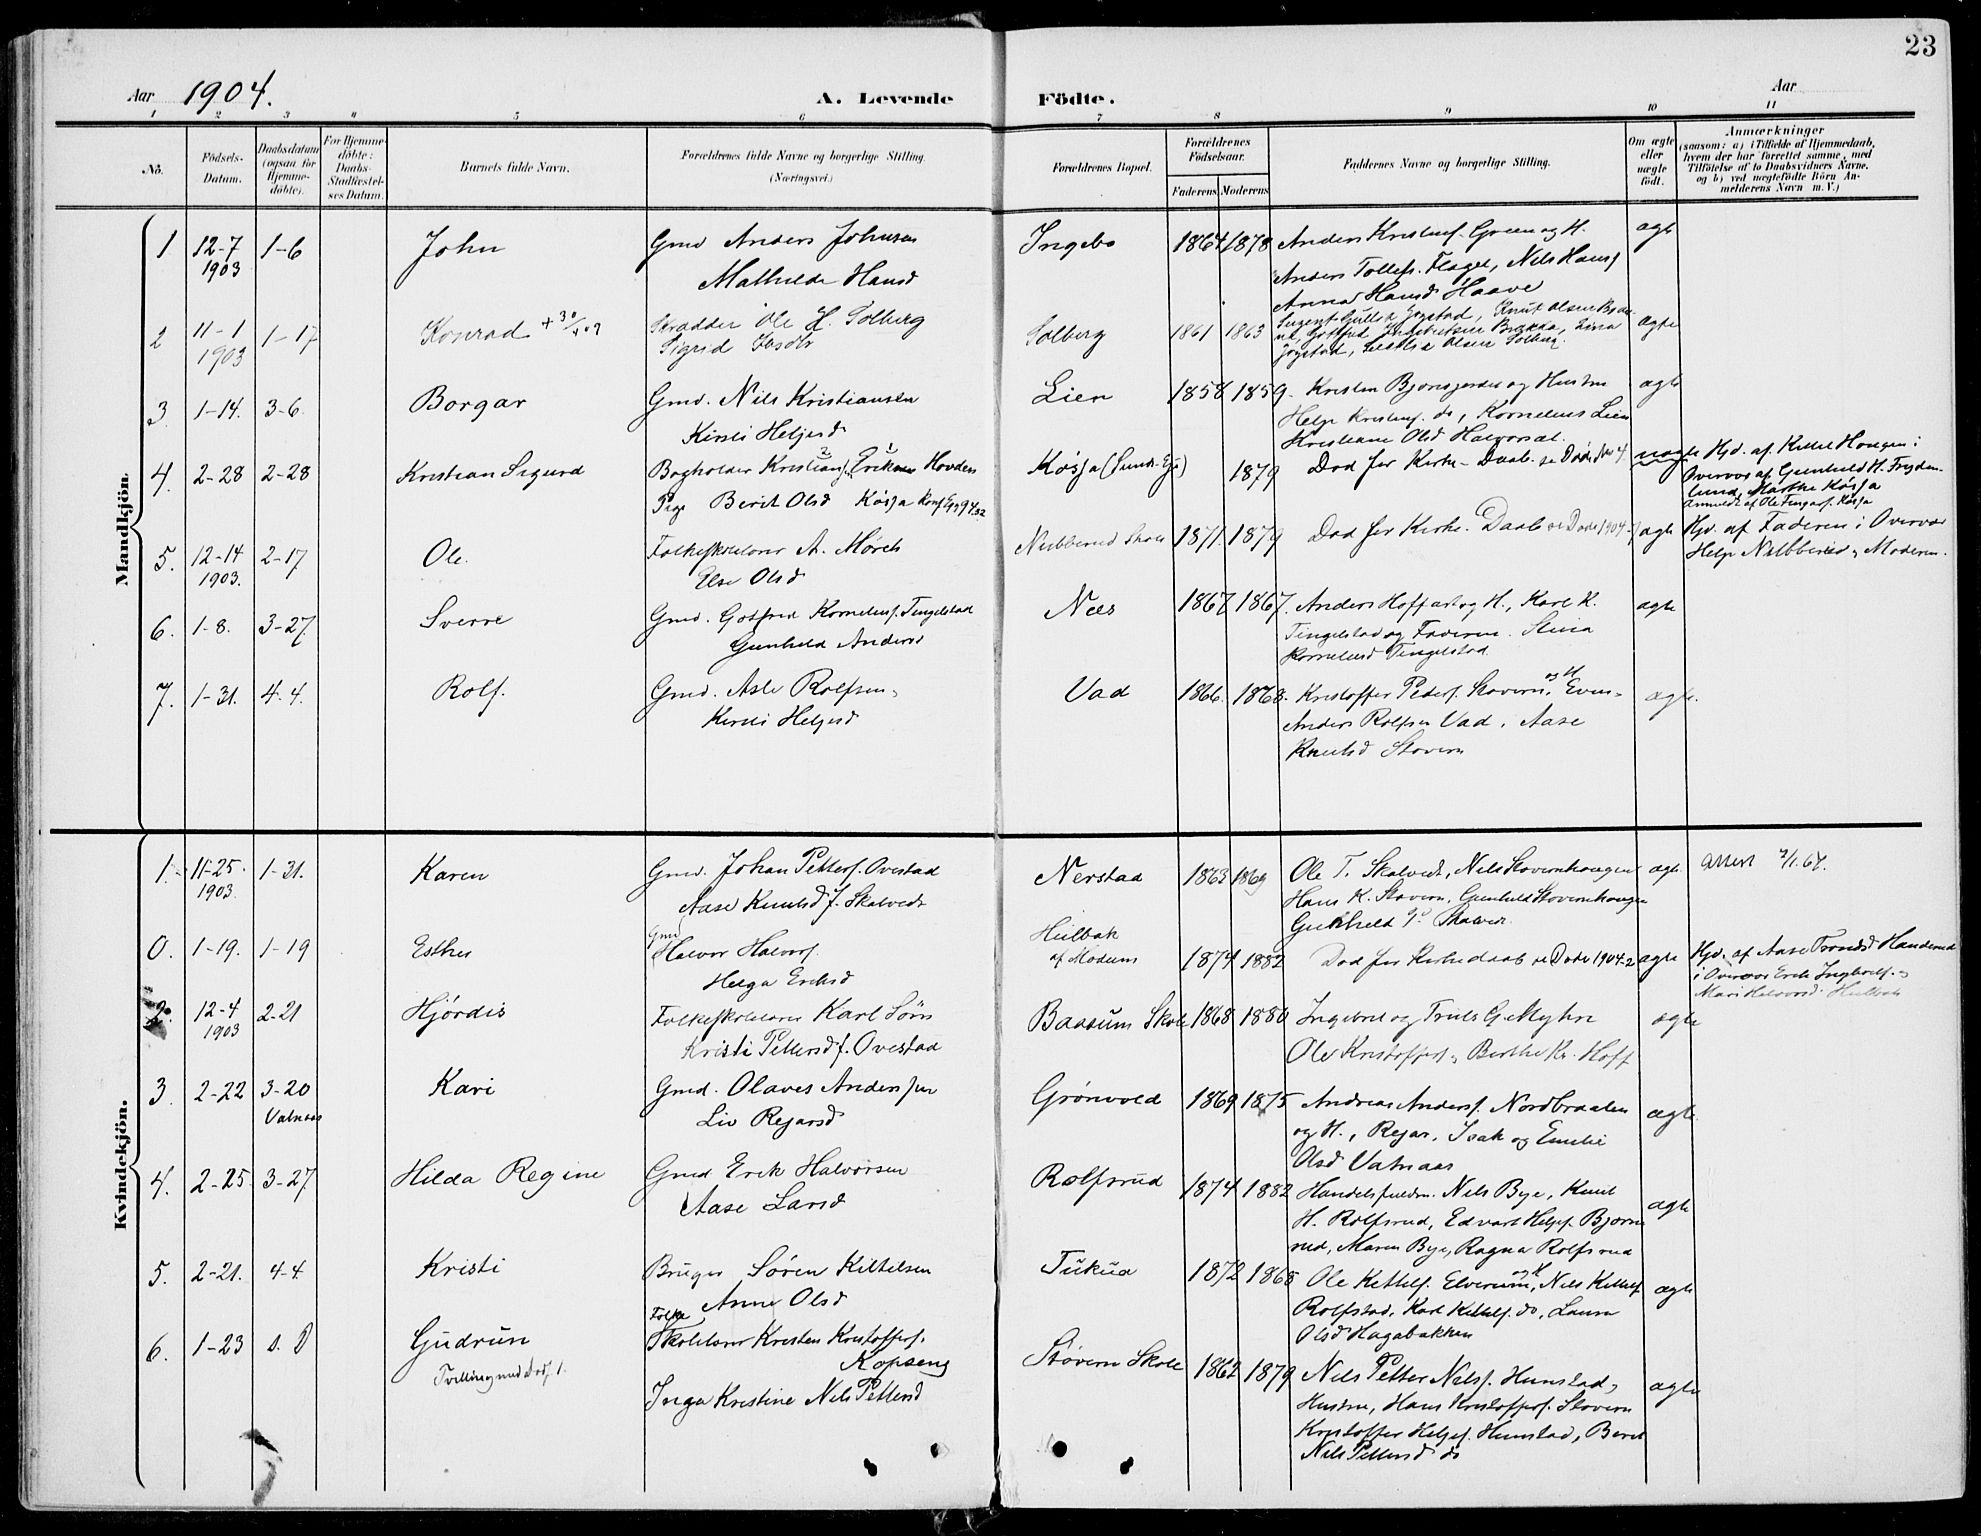 23
Aar 1904.
A. Levende
Födte.
Aar
1 2 3 4 5 6 7 8 9 10 11
No.
Födsels-Datum.
Daabsdatum (ogsaa for Hjemmedöbte).
For Hjemmedöbte: Daabs-Stadfæstelses Datum.
Barnets fulde Navn.
Forældrenes fulde Navne og borgerlige Stilling.
(Næringsvei.)
Forældrenes Bopæl.
Forældrenes Födselsaar.
Faderens Moderens
Faddernes Navne og borgerlige Stilling.
Om ægte eller uægte födt.
Anmærkninger
(saasom: a) i Tilfælde af Hjemmedaab,
hvem der har forrettet samme, med
Tilföielse af to Daabsvidners Navne.
og b) ved uægtefödte Börn An-
melderens Navn m. V.)
Mandkjön.
1 12-7 1903 1-6 John
Gmd Anders Johnsen
Mathilde Hansd
Ingebo 1864 1878
Anders Kristens. Green og H.
Anders Tollefs. Flaget, Nils Hans
Anna Hansd Haave
ægte
2 11-1 1903 1-17 Konrad
Skrædder Ole H. Solberg
Sigrid
Solberg 1861 1863
ægte
3 1-14. 3-6. Borgar
Gmd. Nils Kristiansen
Kirsti Helgesd
Lien 1858 1859
Kristen Bjørnsgaardet og Hustru
Helge Kristens. do, Kornelius Lien
Kristiane Olsd Halvorset.
ægte
4. 2-28 2-28 Kristian Sigurd
Bogholder Kristian Eriksen Hovden
Pige Berit Olsd Køsja
Køsja 1879
Død før Kirke-Daab se Døde 4
uægte
Hjd. af Kittel Haugen i
Overvær af Gunhild H. Frydenlund, Marthe Køsja
5. 12-14 1903. 2-17 Ole.
Folkeskolelærer A. Mørch
Else Olsd
Nubberud Skole 1871. 1879
Død før Kirke. Daab se Døde 1904-
ægte
Hjd af Faderen i Overvær
Helge Nubberud, Moderen.
6. 1-8. 3-27 Sverre
Gmd. Gotfred Kornelius. Tingelstad
Gunhild Andersd
Næs 1867 1867.
Anders Hoffart og H., Karl K.
Tingelstad og Faderen.
Korneliusd Tingelstad
ægte
7. 1-31. 4-4. Rolf.
Gmd. Asle Rolfsen
Kirsti Helgesd
Vad 1866. 1868.
Kristoffer Peders. Stavern og H
Anders Rolfsen Vad, Aase
Knutsd Stavern
ægte.
Kvindekjön.
1. 11-25. 1903. 1-31. Karen
Gmd. Johan Petters. Ovestad
Aase Knutsd f. Skalvedt
Nerstad 1863 1869
Ole T. Skalvedt, Nils Stavernhaugen
Hans K. Stavern, Gunhild Stavernhaugen
Gunhild
ægte
attest 7/1.67.
0. 1-19. 1-19 Esther
Gmd
Halvor Halvors.
Helga Eriksd
Hulbak
af Modum 1874 1882
Død før Kirkedaab se Døde 1904-2
ægte
Hjd. af Aase Trondsd Handerud
i Overvær Erik Ingebrets.
Mari Halvorsd Hulbak
2. 12-4 1903 2-21 Hjördis
Folkeskolelærer Karl Sørn
Kristi Pettersd f. Ovestad
Baasum Skole 1868 1880
Ingebret og Truls G. Myhre
Ole Kristoffers., Berthe Kr. Hoff
ægte
3. 2-22 3-20 Vatnaas Kari
Gmd. Olaves Andersen
Liv Rejarsd
Grønvold 1869 1875
Andreas Anders. Nordbraaten
og H., Rejar, Isak og Emilie
Olsd Vatnaas
ægte
4. 2-25 3-27 Hilda Regine
Gmd Erik Halvorsen
Aase Larsd
Rolfsrud 1874 1882
Handelsfuldm. Nils Bye, Knut
H. Rolfsrud, Edvart Helges. Bjørnerud, Maren Bye, Ragna Rolfsrud
ægte
5. 2-21. 4-4 Kristi
Bruger Søren Kittelsen
Anne Olsd
Tukua 1872 1865
Ole Kittels. Elverum og H, Nils Kittels.
Rolfstad, Karl Kittels. do, Laura
Olsd Hagabakken
ægte
6. 1-23 s. D Gudrun
Tvilling med
Folke
Skolelærer Kristen Kristoffers.
Kopseng
Inga Kristine Nils Pettersd
Støvern Skole 1862 1879
Nils Petter Nils. Hunstad,
Hustru, Hans Kristoffers. Stavern
Kristoffer Helges. Hunstad, Berit
Nils Pettersd do
ægte